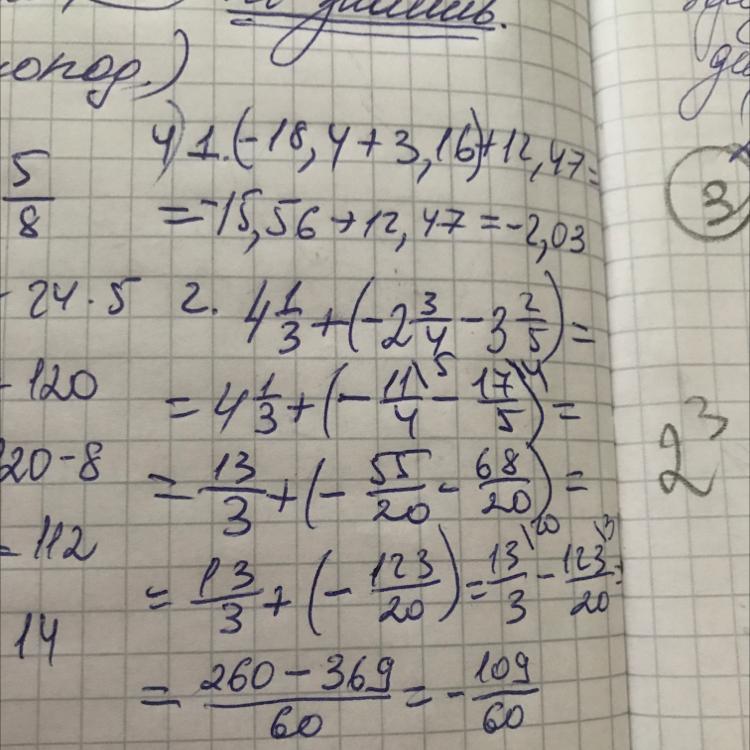 5/8
- 24 · 5
- 120
20 - 8
- 112
14
4) 1. (-18,4 + 3,16) + 12,47 =
= -15,56 + 12,47 = -2,03
2. 4 1/3 + (-2 3/4 - 3 2/5) =
= 4 1/3 + (- 11\5/4 - 17\4/5) =
= 13/3 + (- 55/20 - 68/20) =
= 13/3 + (- 123/20) = 13\20/3 - 123\3/20 =
= 260 - 369/60 = - 109/60
3
2³